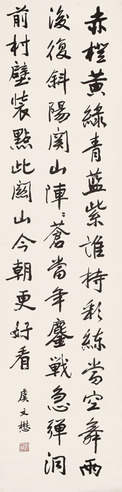 赤橙黃綠青藍紫誰持彩練當空舞雨
後復斜陽關山陣々蒼當年鏖戰急彈洞
前村壁裝點此關山今朝更好看
虞文